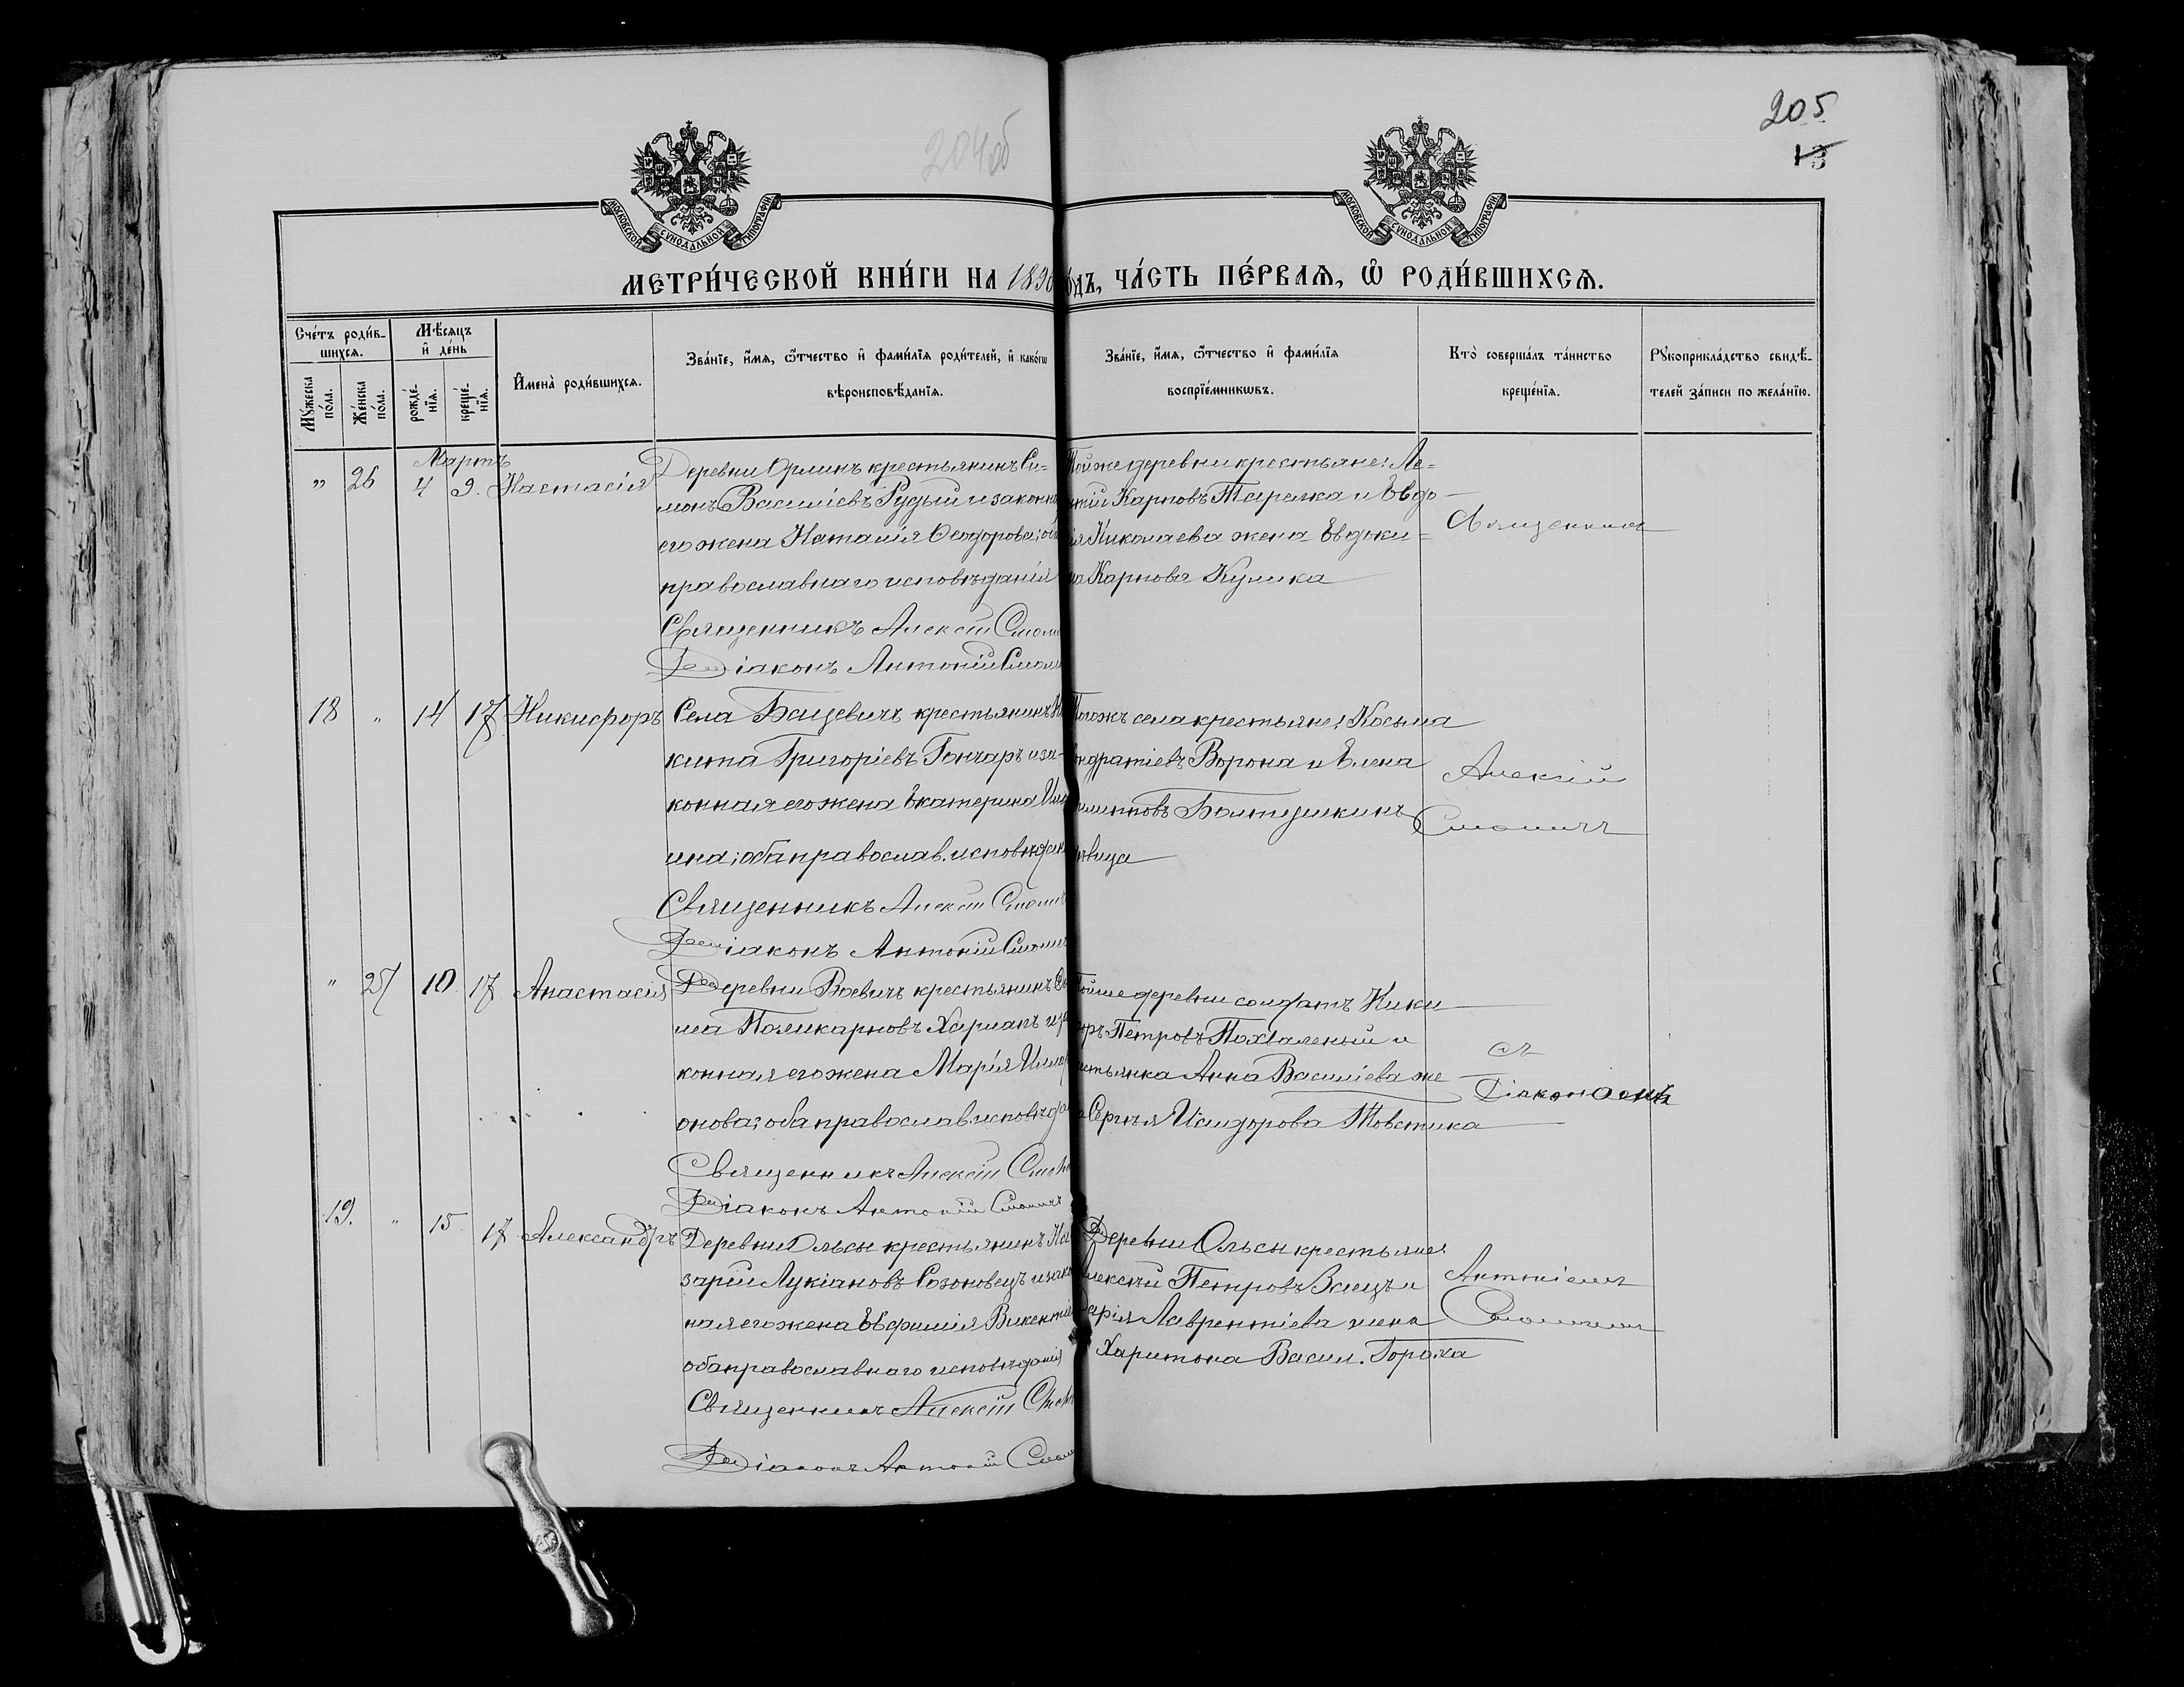 204об
205
13
МОСКОВСКОЙ СУНОДАЛЬНОЙ ТИПОГРАФІИ
МОСКОВСКОЙ СУНОДАЛЬНОЙ ТИПОГРАФІИ
МЕТРИ́ЧЕСКОЙ КНИ́ГИ НА 189 О́ДЪ, ЧА́СТЬ ПЕ́РВАѦ, Ѽ РОДИ́ВШИХСѦ.
Сче́тъ роди́в-
шихсѧ.
Мꙋ́жеска по́ла.
Же́нска по́ла.
Мѣ́сѧцъ
и҆ де́нь
рожде́-
нїѧ.
креще́-
нїѧ.
И҆мена̀ роди́вшихсѧ.
Зва́нїе, и҆́мѧ, ѻ҆́тчество и҆ фамѝлїѧ роди́телей, и҆ како́гѡ
вѣроисповѣ́данїѧ.
Зва́нїе, и҆́мѧ, ѻ҆́тчество и҆ фами́лїѧ
воспрїе́мникѡвъ.
Кто̀ соверша́лъ та́инство
креще́нїѧ.
Рꙋкоприкла́дство свидѣ́-
телей за́писи по жела́нїю.
Мартъ
" 26 4 9. Настасія
Деревни Орлинъ крестьянинъ Си-
монъ Василіевъ Рудый и законна
его жена Наталія Ѳеодорова; об
православнаго исповѣданія
Священникъ Алексій Смоли
Діаконъ Антоній Смоли
Той же деревни крестьяне: Ле-
нтій Карповъ Тарелка и Евдо
ія Николаева жена Евдоки-
ма Карпова Кулика
Священникъ
18 " 14 17 Никифоръ
Села Бацевичъ крестьянинъ Ни
кита Григоріевъ Гончаръ и за-
конная его жена Екатерина
ина; оба православ. исповѣдан
Священникъ Алексій Смолич
Діаконъ Антоній Смолич
Тогожъ села крестьяне: Косьма
ондратіевъ Ворона и Елена
Алексій
Смоличъ
" 27 10 17 Анастасія
Деревни Воевичъ крестьянинъ
ма Поликарповъ Харланъ и за
конная его жена Марія Илла
онова; оба православ. исповѣда
Священникъ Алексій Смоли
Діаконъ Антоній Смоличъ
Той же деревни солдатъ Ники
ръ Петровъ Похваленый и
стьянка Анна Василіева же
а Сергѣя Исидорова Товстика
съ
Діакономъ
19. " 15 17 Александръ
Деревни Ольсы крестьянинъ На
зарій Лукіановъ Созоновецъ и зако
ная его жена Евфимія Викентіе
оба православнаго исповѣданія
Священникъ Алексій Смоли
Діаконъ Антоній Смоли
Деревни Ольсы крестьяне:
Алексѣй Петровъ Заецъ и
арія Лаврентіева жена
Харитона Васил. Гороха
Антоніемъ
Смоличемъ